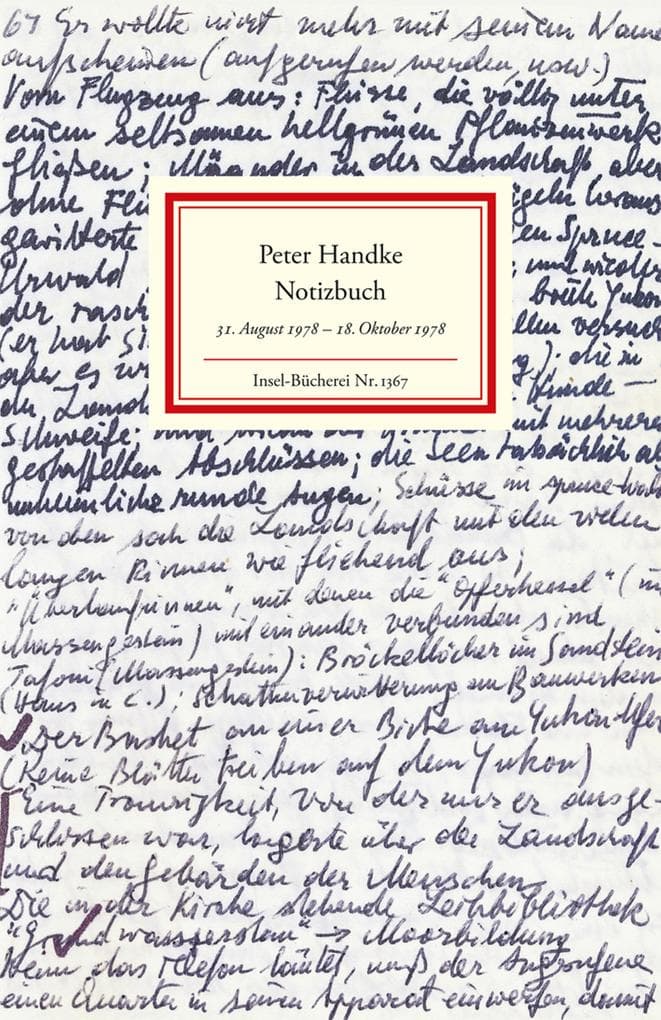 61 Er wollte nicht mehr mit seinem Name
aufscheinen (aufgerufen werden, usw.)
Vom Flugzeug aus: Flüsse, die völlig unter
einem seltsamen hellgrünen Pflanzenwerk
fließen; Mäander in der Landschaft, aber
ohne
ügeln heraus
gewitterte
en Spruce-
Urwald
; und wieder
der rasch
breite Yukon
llen versuch
(er hat Si
); die in
aber es
Hunde —
der Land
mit mehreren
Schweife; und
gestaffelten Abschlüssen; die Seen tatsächlich als
unheimliche runde Augen; Schüsse im spruce-Wald
von oben sah die Landschaft mit den vielen
langen Rinnen wie fliehend aus;
"Überlaufrinnen", mit denen die "Opferkessel" (im
Massengestein) miteinander verbunden sind
Tafoni (Massengestein): Bröckellöcher im Sandstein
(Haus in C.); Schattenverwitterung an Bauwerken
Der Basket an einer Birke am Yukon-Ufer
(Keine Blätter treiben auf dem Yukon)
Eine Traurigkeit, von der nur er ausge-
schlossen war, lagerte über der Landschaft
und den Gebärden der Menschen
Die in der Kirche stehende Leihbibliothek
→ Moorbildung
Wenn das Telefon läutet, muß der Angerufene
einen Quarter in seinen Apparat einwerfen, damit
Peter Handke
Notizbuch
31. August 1978 – 18. Oktober 1978
Insel-Bücherei Nr. 1367